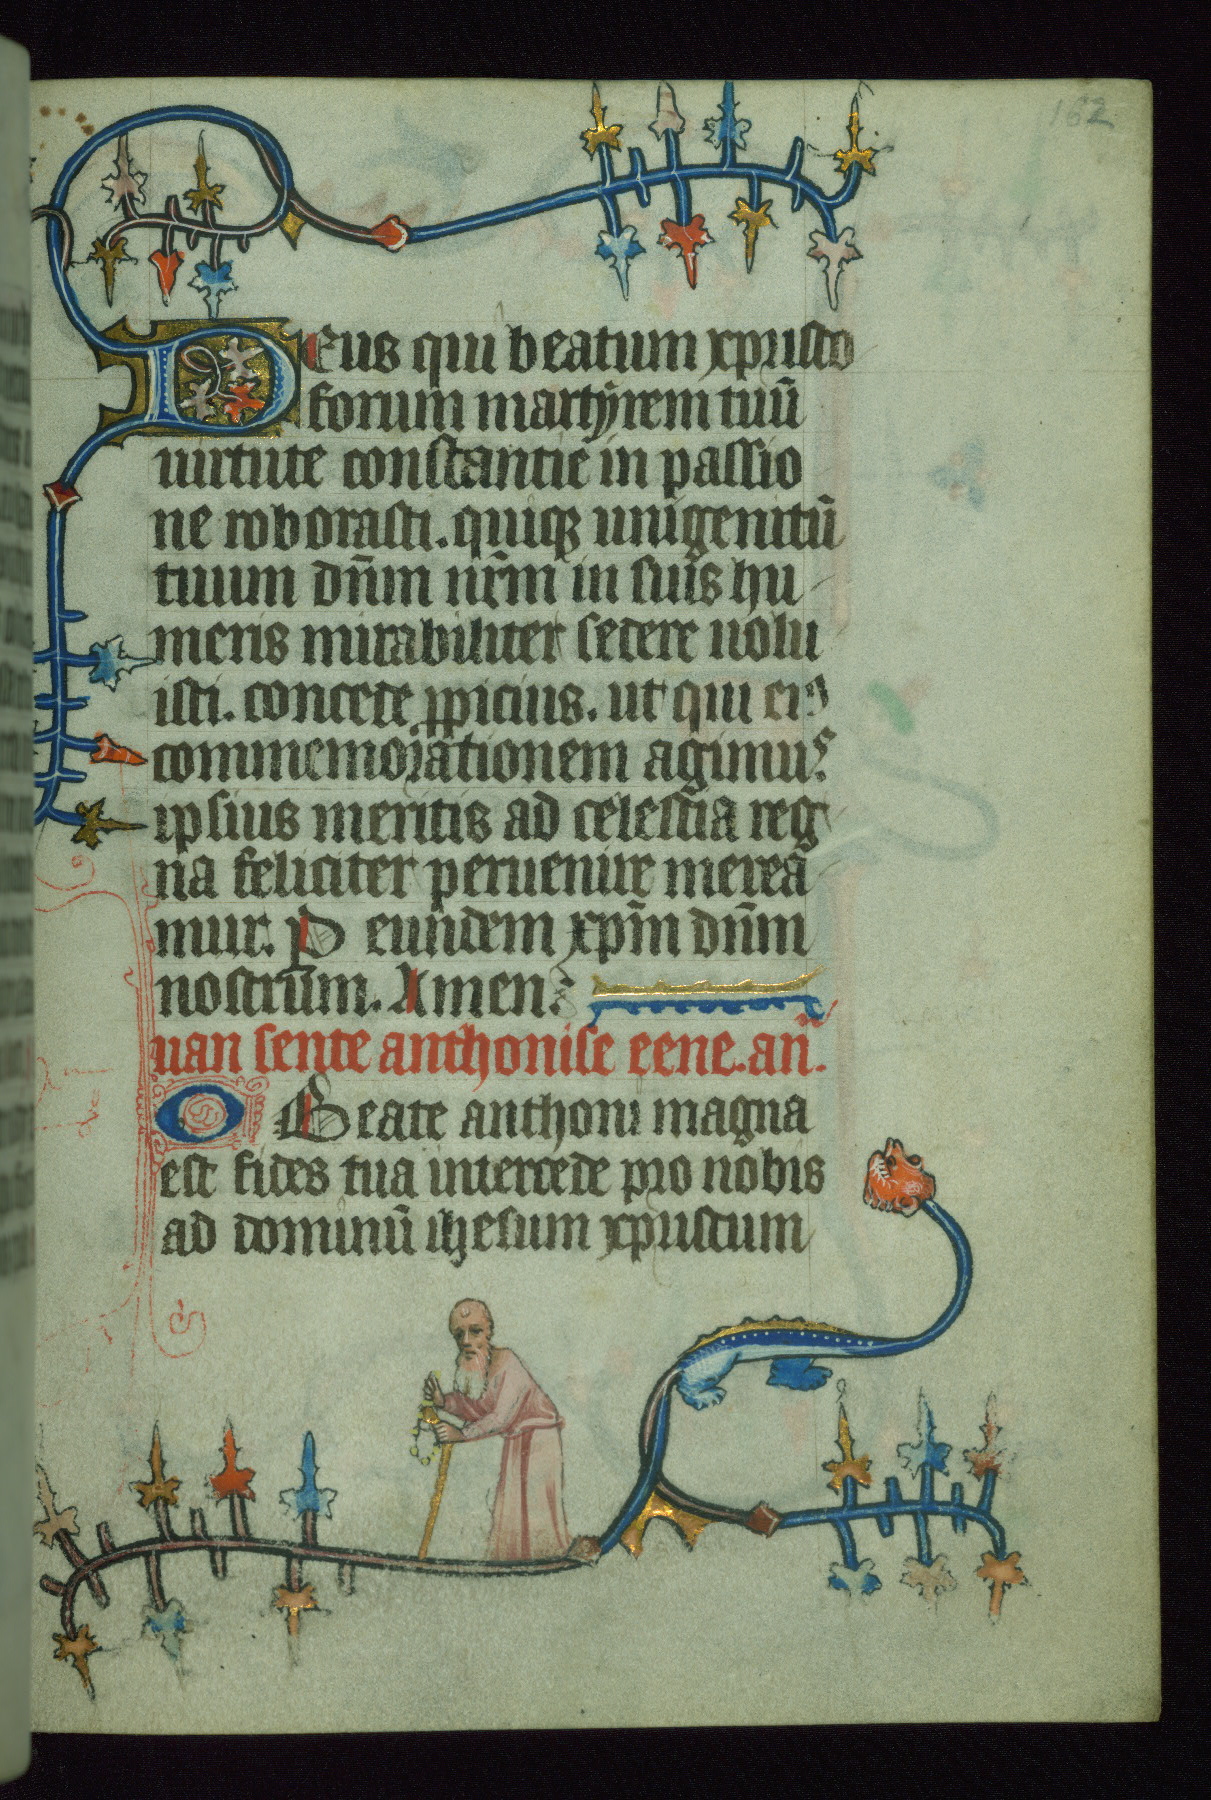 162
DEus qui beatum xpristo
forum martyrem tuū
uirtute constantie in passio
ne roborasti. quiqꝫ unigenitū
tuum dn̄m nr̄m in suis hu
meris mirabiliter sedere uolu
isti. concede ꝓpicius. ut qui eiꝰ
commemorationem agimus
ipsius meritis ad celestia reg
na feliciter peruenire merea
mur. P eundem xp̄m dn̄m
nostrum. Amen.
uan sente anthonise eene. an̄.
O Beate anthoni magna
est fides tua intercede pro nobis
ad dominū ihesum xpristum